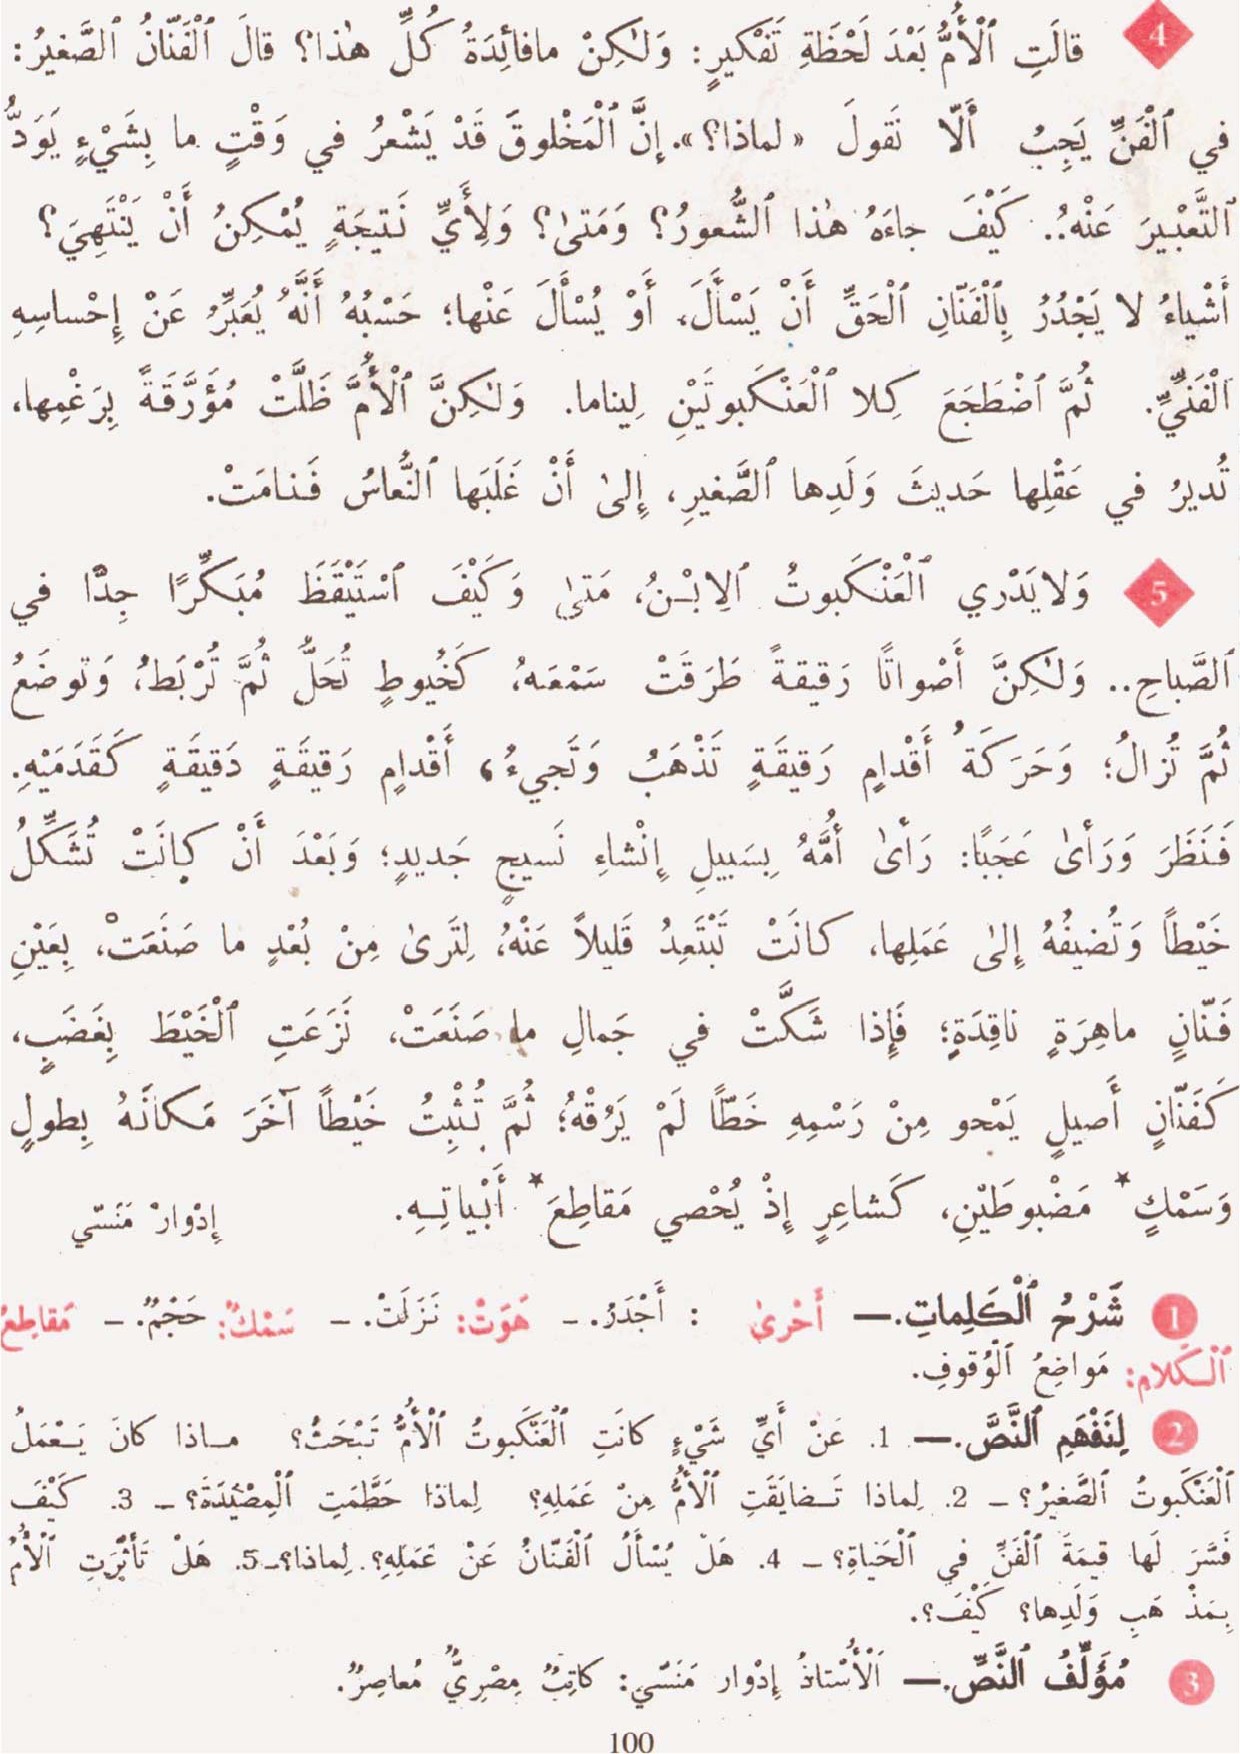 4 قالَتِ ٱلْأُمُّ بَعْدَ لَحْظَةِ تَفْكيرٍ: وَلٰكِنْ مافائِدَةُ كُلِّ هٰذا؟ قالَ ٱلْفَنّانُ ٱلصَّغيرُ:
في ٱلْفَنِّ يَجِبُ أَلّا تَقولَ «لماذا؟». إِنَّ ٱلْمَخْلوقَ قَدْ يَشْعرُ في وَقْتٍ ما بِشَيْءٍ يَوَدُّ
ٱلتَّعْبيرَ عَنْهُ.. كَيْفَ جاءَهُ هٰذا ٱلشُّعورُ؟ وَمَتىٰ؟ وَلِأَيِّ نَتيجَةٍ يُمْكِنُ أَنْ يَنْتَهِيَ؟
أَشْياءُ لا يَجْدُرُ بِٱلْفَنّانِ ٱلْحَقِّ أَنْ يَسْأَلَ، أَوْ يُسْأَلَ عَنْها؛ حَسْبُهُ أَنَّهُ يُعَبِّرُ عَنْ إِحْساسِهِ
ٱلْفَنِّيِّ. ثُمَّ ٱضْطَجَعَ كِلا ٱلْعَنْكَبوتَيْنِ لِيناما. وَلٰكِنَّ ٱلْأُمَّ ظَلَّتْ مُؤَرَّقَةً بِرَغْمِها،
تُديرُ في عَقْلِها حَديثَ وَلَدِها ٱلصَّغيرِ، إِلىٰ أَنْ غَلَبَها ٱلنُّعاسُ فَنامَتْ.
5 وَلايَدْري ٱلْعَنْكَبوتُ ٱلِابْنُ، مَتىٰ وَكَيْفَ ٱسْتَيْقَظَ مُبَكِّرًا جِدًّا في
ٱلصَّباحِ.. وَلٰكِنَّ أَصْواتًا رَقيقةً طَرَقَتْ سَمْعَهُ، كَخُيوطٍ تُحَلُّ ثُمَّ تُرْبَطُ؛ وَتوضَعُ
ثُمَّ تُزالُ؛ وَحَرَكَةُ أَقْدامٍ رَقيقَةٍ تَذْهَبُ وَتَجيءُ، أَقْدامٍ رَقيقَةٍ دَقيقَةٍ كَقَدَمَيْهِ.
فَنَظَرَ وَرَأىٰ عَجَبًا: رَأىٰ أُمَّهُ بِسَبيلِ إِنْشاءِ نَسيجٍ جَديدٍ؛ وَبَعْدَ أَنْ كانَتْ تُشَكِّلُ
خَيْطاً وَتُضيفُهُ إِلىٰ عَمَلِها، كانَتْ تَبْتَعِدُ قَليلاً عَنْهُ، لِتَرىٰ مِنْ بُعْدٍ ما صَنَعَتْ، بِعَيْنِ
فَنّانٍ ماهِرَةٍ ناقِدَةٍ؛ فَإِذا شَكَّتْ في جَمالِ ما صَنَعَتْ، نَزَعَتِ ٱلْخَيْطَ بِغَضَبٍ،
كَفَنّانٍ أَصيلٍ يَمْحو مِنْ رَسْمِهِ خَطّاً لَمْ يَرُقْهُ؛ ثُمَّ تُثْبِتُ خَيْطاً آخَرَ مَكانَهُ بِطولٍ
وَسَمْكٍ* مَضْبوطَيْنِ، كَشاعِرٍ إِذْ يُحْصي مَقاطِعَ* أَبْياتِهِ. إِدْوارْ مَنَسّي
1 شَرْحُ ٱلْكَلِماتِ.— أَحْرىٰ : أَجْدَرُ. – هَوَتْ: نَزَلَتْ. – سَمْكٌ: حَجْمٌ. – مَقاطِعُ
ٱلْكَلامِ: مَواضِعُ ٱلْوُقوفِ.
2 لِنَفْهَمِ ٱلنَّصَّ.— 1. عَنْ أَيِّ شَيْءٍ كانَتِ ٱلْعَنْكَبوتُ ٱلْأُمُّ تَبْحَثُ؟ ماذا كانَ يَعْمَلُ
ٱلْعَنْكَبوتُ ٱلصَّغيرُ؟ – 2. لِماذا تَضايَقَتِ ٱلْأُمُّ مِنْ عَمَلِهِ؟ لِماذا حَطَّمَتِ ٱلْمِصْيَدَةَ؟ – 3. كَيْفَ
فَسَّرَ لَها قيمَةَ ٱلْفَنِّ في ٱلْحَياةِ؟ – 4. هَلْ يُسْأَلُ ٱلْفَنّانُ عَنْ عَمَلِهِ؟. لِماذا؟–5. هَلْ تَأَثَّرَتِ ٱلْأُمُّ
بِمَذْ هَبِ وَلَدِها؟ كَيْفَ؟.
3 مُؤَلِّفُ ٱلنَّصِّ.— اَلْأُسْتاذُ إِدْوار مَنَسّي: كاتِبٌ مِصْرِيٌّ مُعاصِرٌ.
100